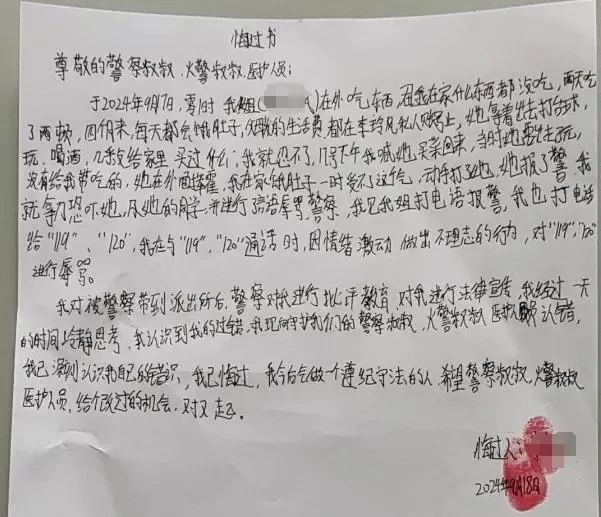 悔过书
尊敬的警察叔叔、火警叔叔、医护人员：
于2024年9月17日，零时 我姐( )在外吃东西，因我在家什么东西都没吃，两天吃
了两顿，四个月来，每天都会饿肚子，父亲的生活费都在李玲凤私人账号上，她拿着出去打台球，
玩、喝酒，几乎没给家里买过什么；我就忍不了，17号下午我喊她买菜回来，当时她要出去玩，
没有给我带吃的，她在外面挥霍，我在家饿肚子一时受不了这个气，动手打了她，她报了警，我
就拿刀恐吓她，及她的同学，并进行言语辱骂警察，我见我姐打电话报警，我也打电话
给"119"、"120"，我在与"119"，"120"通话时，因情绪激动 做出不理志的行为，对"119"，"120"
进行辱骂。
我对被警察带到派出所后，警察对我进行批评教育，对我进行法律宣传，我经过一天
的时间冷静思考，我认识到我的过错，我现向守护我们的警察叔叔，火警叔叔 医护人员 认错，
我已深刻认识我自己的错识，我已悔过，我今后会做一个遵纪守法的人 希望警察叔叔，火警叔叔
医护人员，给个改过的机会，对不起。
悔过人：
2024年9月18日